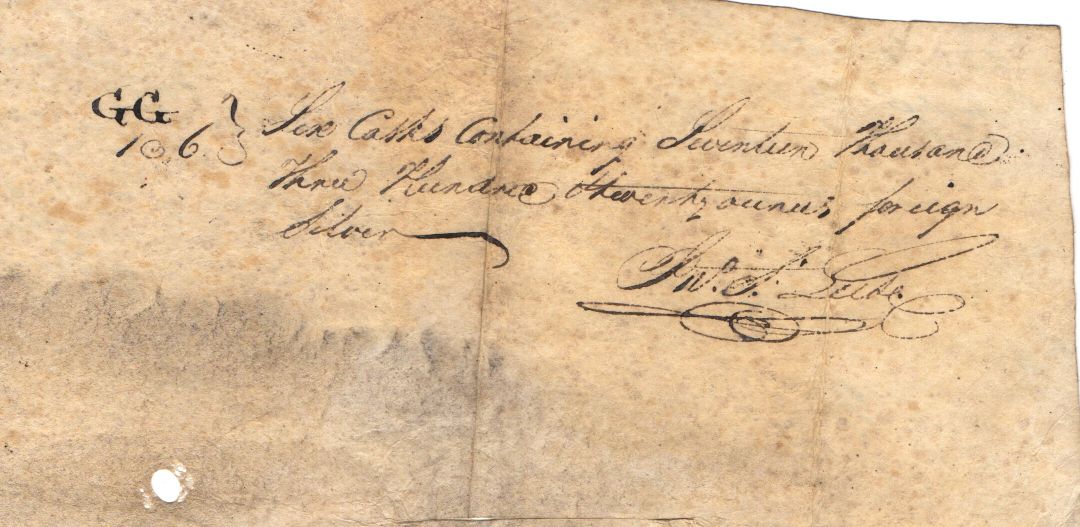 GG } Six Casks Containing Seventeen Thousand
1 @ 6. Three Hundred & twenty ounces foreign
Silver
Jno. S. Leibe